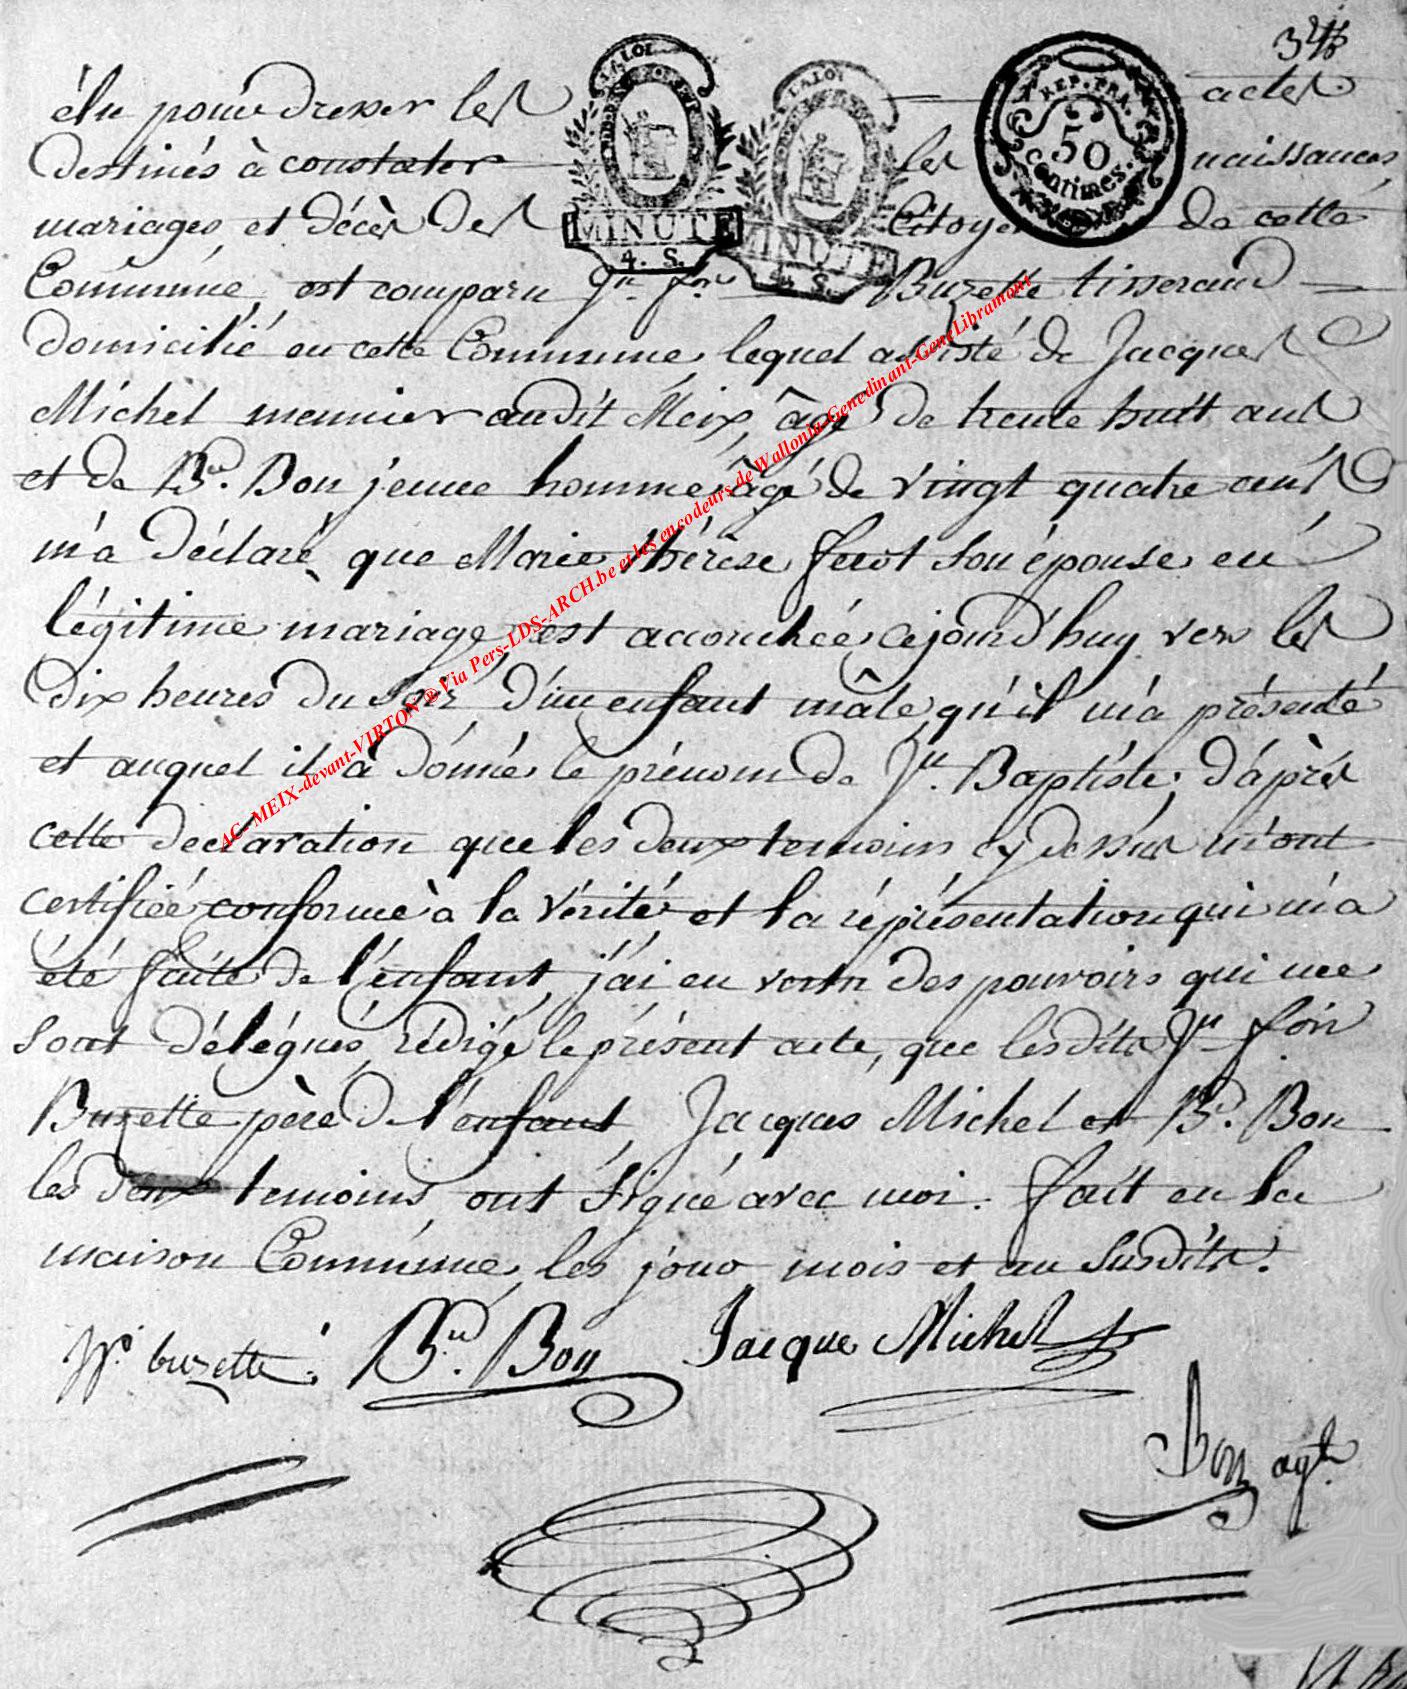 élu pour dresser les actes
destinés à constater les naissances
mariages et décès des Citoyens de cette
Commune, est comparu Jn. fois Buzette tisserand
domicilié en cette Commune, lequel assisté de Jacques
Michel meunier audit Meix, âgé de trente huit ans
et de Bd. Bon jeune homme, âgé de vingt quatre ans
m'a déclaré que Marie thérèse son épouse en
légitime mariage, est accouchée, cejourd'huy vers les
dix heures du soir d'un enfant mâle, qu'il m'a présenté
et auquel il à donné le prénom de Jn. Baptiste; d'après
cette declaration que les deux temoins cy dessus m'ont
certifiée conforme à la vérité, et la réprésentation qui m'a
été faite de l'enfant, j'ai en vertu des pouvoirs qui me
sont délégués, rédigé le présent acte, que lesdits Jn fois
Buzette père de l'enfant, Jacques Michel et Bd. Bon
les deux temoins, ont signé avec moi. fait en la
maison Commune, les jour mois et an susdits.
buzette. Bd. Bon Jacque Michel
Bon agt.
LA LOI
MINUTE
4. S.
LA LOI
MINUTE
4. S.
REP. FRA.
50
Centimes.
AC- MEIX-devant-VIRTON ® Via Pers-LDS-ARCH.be et les encodeurs de Wallonia-Genedinant-GeneLibramont